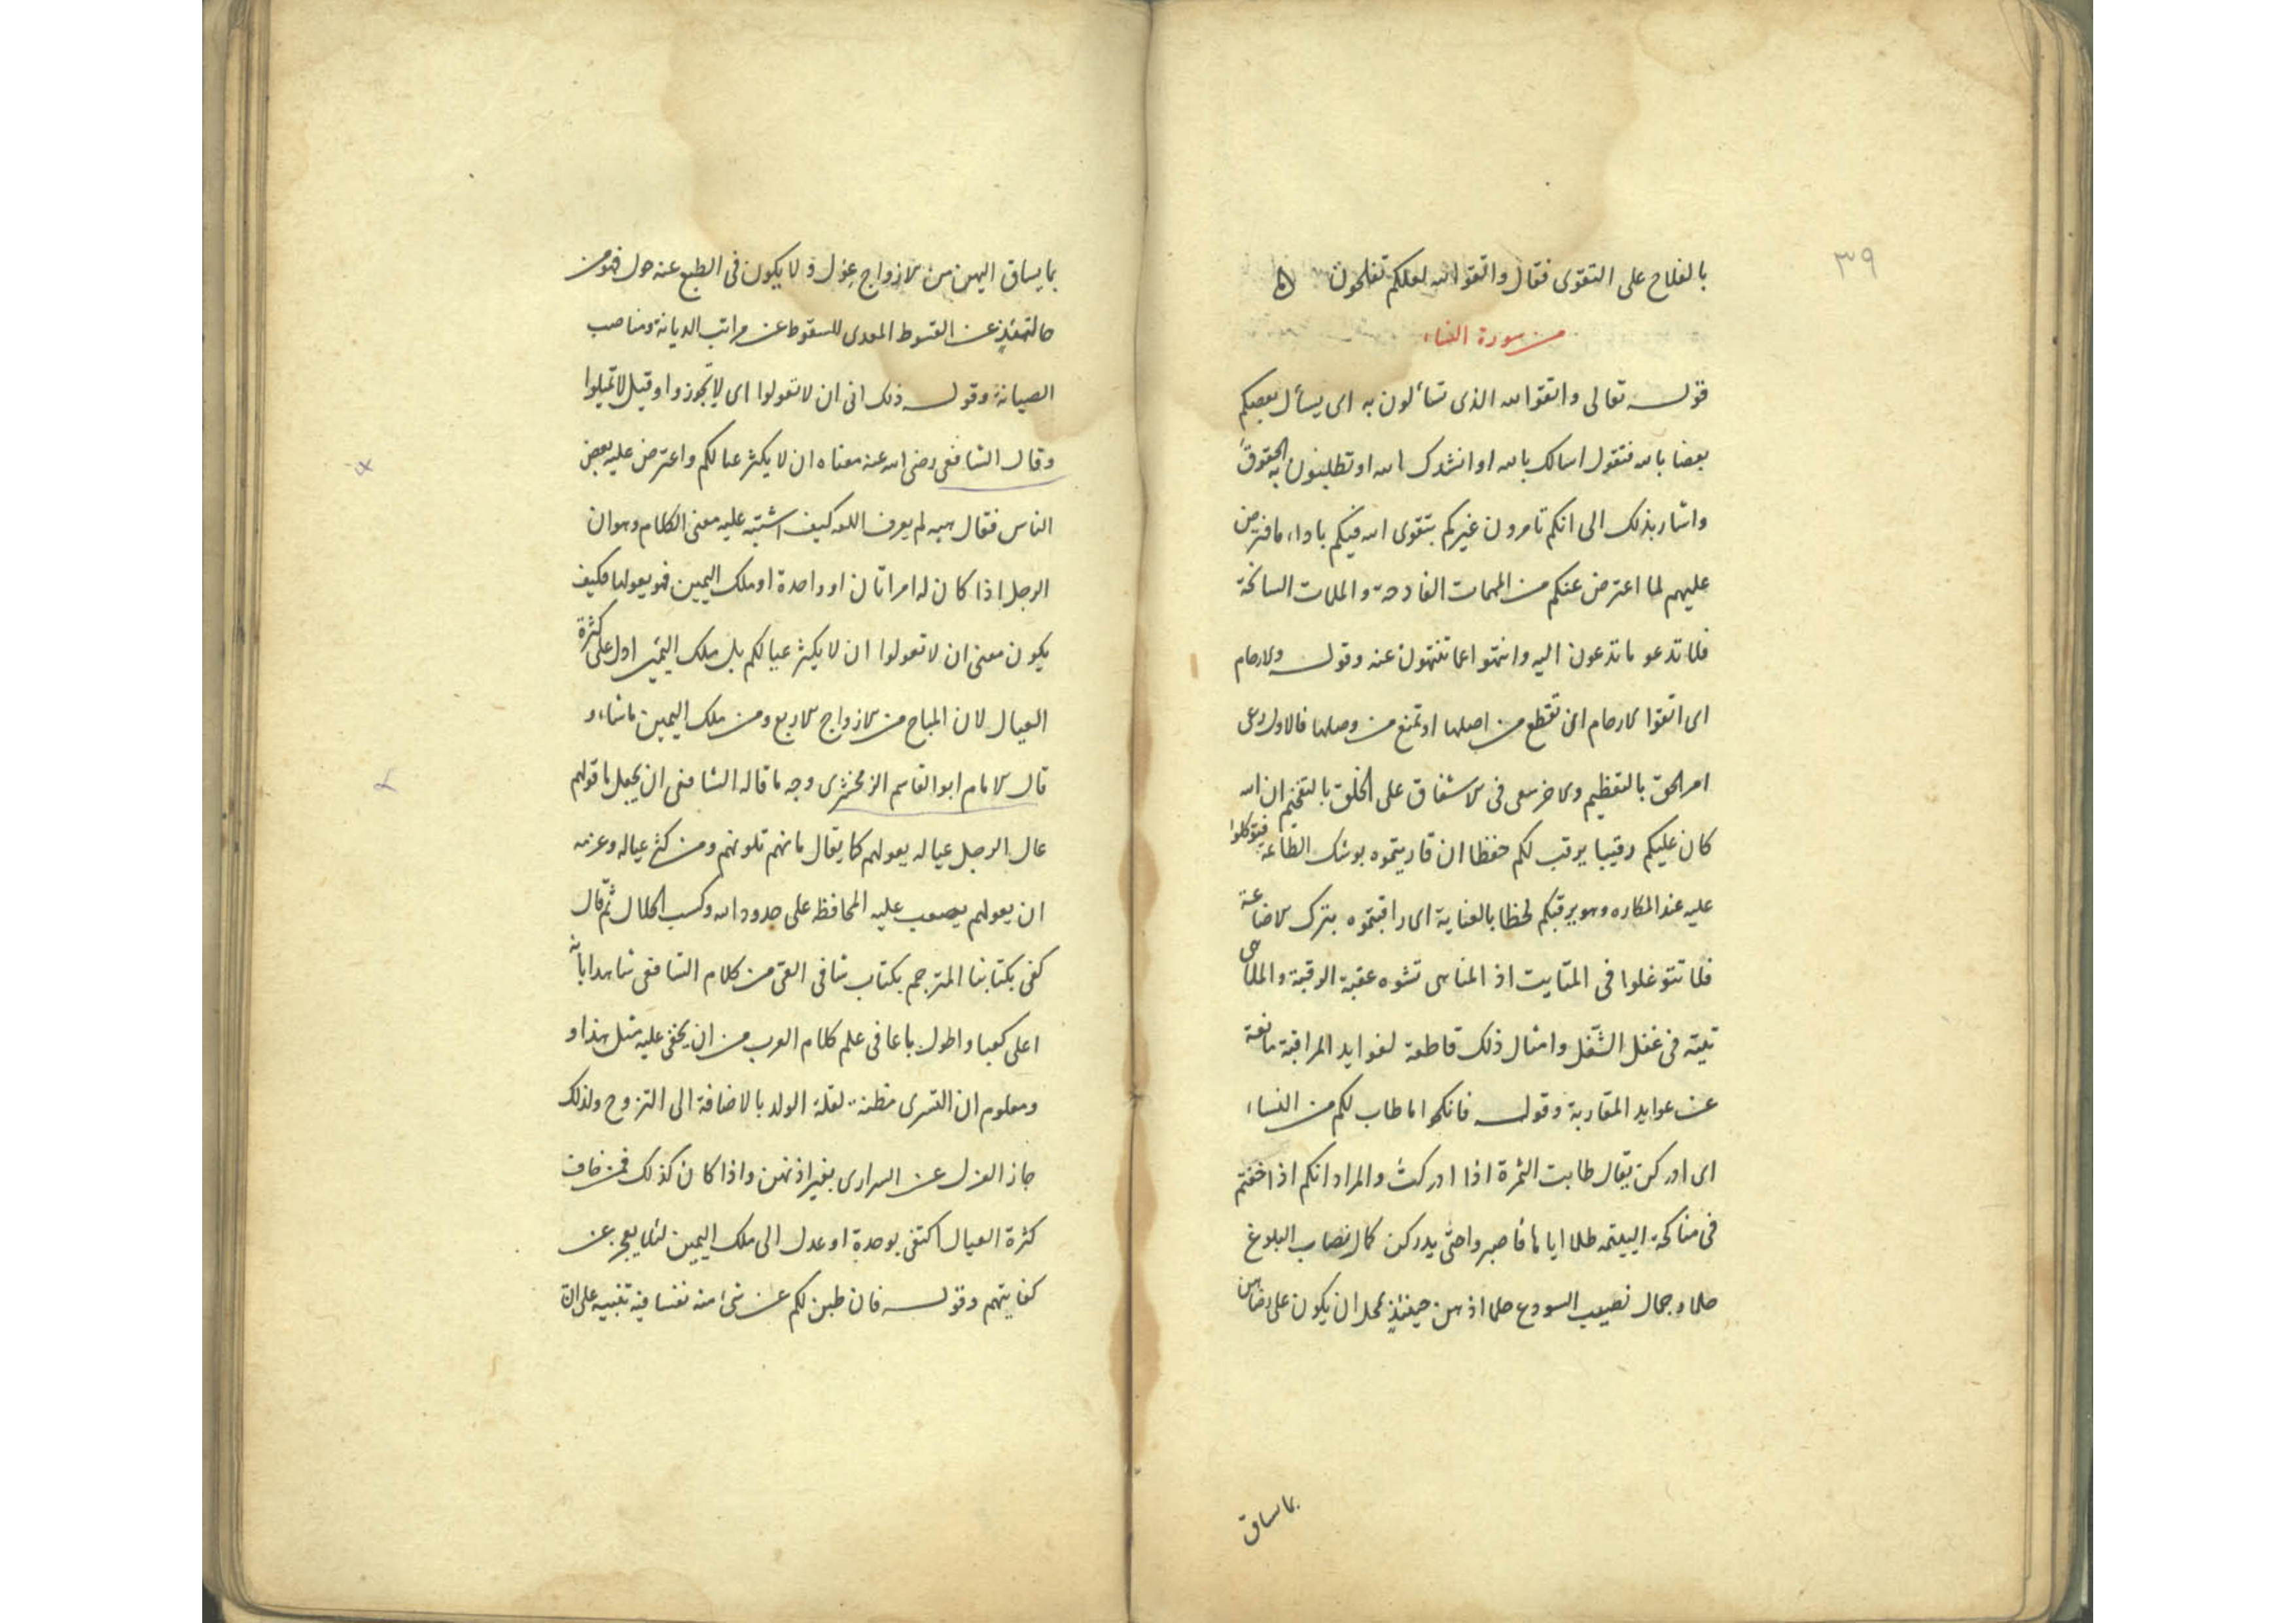 ٣٩
بالفلاح على التقوى فقال واتقوا الله لعلكم تفلحون
من سورة النساء
قوله تعالى واتقوا الله الذى تسألون به اى يسأل بعضكم
بعضا بالله فتقول اسالك بالله او انشدك الله او تطلبون به الحقوق
واشار بذلك الى انكم تامرون غيركم بتقوى الله فيكم باداء ما فترض
عليهم لما اعترض عنكم من المهمات الفادحة والملمات السانحة
فلما تدعو ما تدعون اليه وانتهوا عما تنتهون عنه وقوله والارحام
اى اتقوا الارحام ان تقطع من اصلها او تمنع من وصلها فالاول رعى
امر الحق بالتعظيم والاخر سعى فى الاشفاق على الخلق بالتفخيم ان الله
كان عليكم رقيبا يرقب لكم حفظا ان قاربتموه بوشك الطاعة فتوكلوا
عليه عند المكاره وهو يرقبكم لحظا بالعناية اى راقبتموه بترك الاضاعة
فلا تتوغلوا فى اذ المناهى تشوه عقبة الرقبة والملاهى
فى غفل الشغل وامثال ذلك قاطعة لفوايد المراقبة مانعة
عن عوايد المقاربة وقوله فانكحوا ما طاب لكم من النساء
اى ادركن يقال طابت الثمرة اذا ادركت والمراد انكم اذا خفتم
فى مناكحة اليتيمة ظلما اياها فاصبروا حتى يدركن كمال نصاب البلوغ
حلما وجمال نصيب حلما اذ هن حينئذ بمحل ان يكون على رضاهن
بما يساق
بما يساق اليهن من الازواج عول ولا يكون فى الطبع عنه حول فهو من
حالتئذ عن القسوط المعدى للسقوط عن مراتب الديانة ومناصب
الصيانة وقوله ذلك ادنى ان لا تعولوا اى لا تجوروا وقيل لا تميلوا
وقال الشافعى رضى الله عنه معناه ان لا يكثر عيالكم واعترض عليه بعض
الناس فقال هبه لم يعرف اللغة كيف اشتبه عليه معنى الكلام وهو ان
الرجل اذا كان له امراتان او واحدة او ملك اليمين فهو يعولها فكيف
يكون معنى ان لا تعولوا ان لا يكثر عيالكم بل ملك اليمين ادل على كثرة
العيال لان المباح من الازواج الاربع ومن ملك اليمين ما شاء و
قال الامام ابو القاسم الزمخشرى وجه ما قاله الشافعى ان يجعل ما قولهم
عال الرجل عياله يعولهم كما يقال مانهم يمونهم ومن كثر عياله وعزمه
ان يعولهم يصعب عليه المحافظة على حدود الله وكسب الحلال ثم قال
كفى بكتابنا المترجم بكتاب شافى العى من كلام الشافعى شاهدا بانه
اعلى كعبا واطول باعا فى علم كلام العرب من ان يخفى عليه مثل هذا و
ومعلوم ان التسرى مظنة لقلة الولد بالاضافة الى التزوج ولذلك
جاز العزل عن السرارى بغير اذنهن واذا كان كذلك فمن خاف
كثرة العيال اكتفى بوحدة او عدل الى ملك اليمين لئلا يعجز عن
كفايتهم وقوله فان طبن لكم عن شئ منه نفسا فيه تنبيه على ان